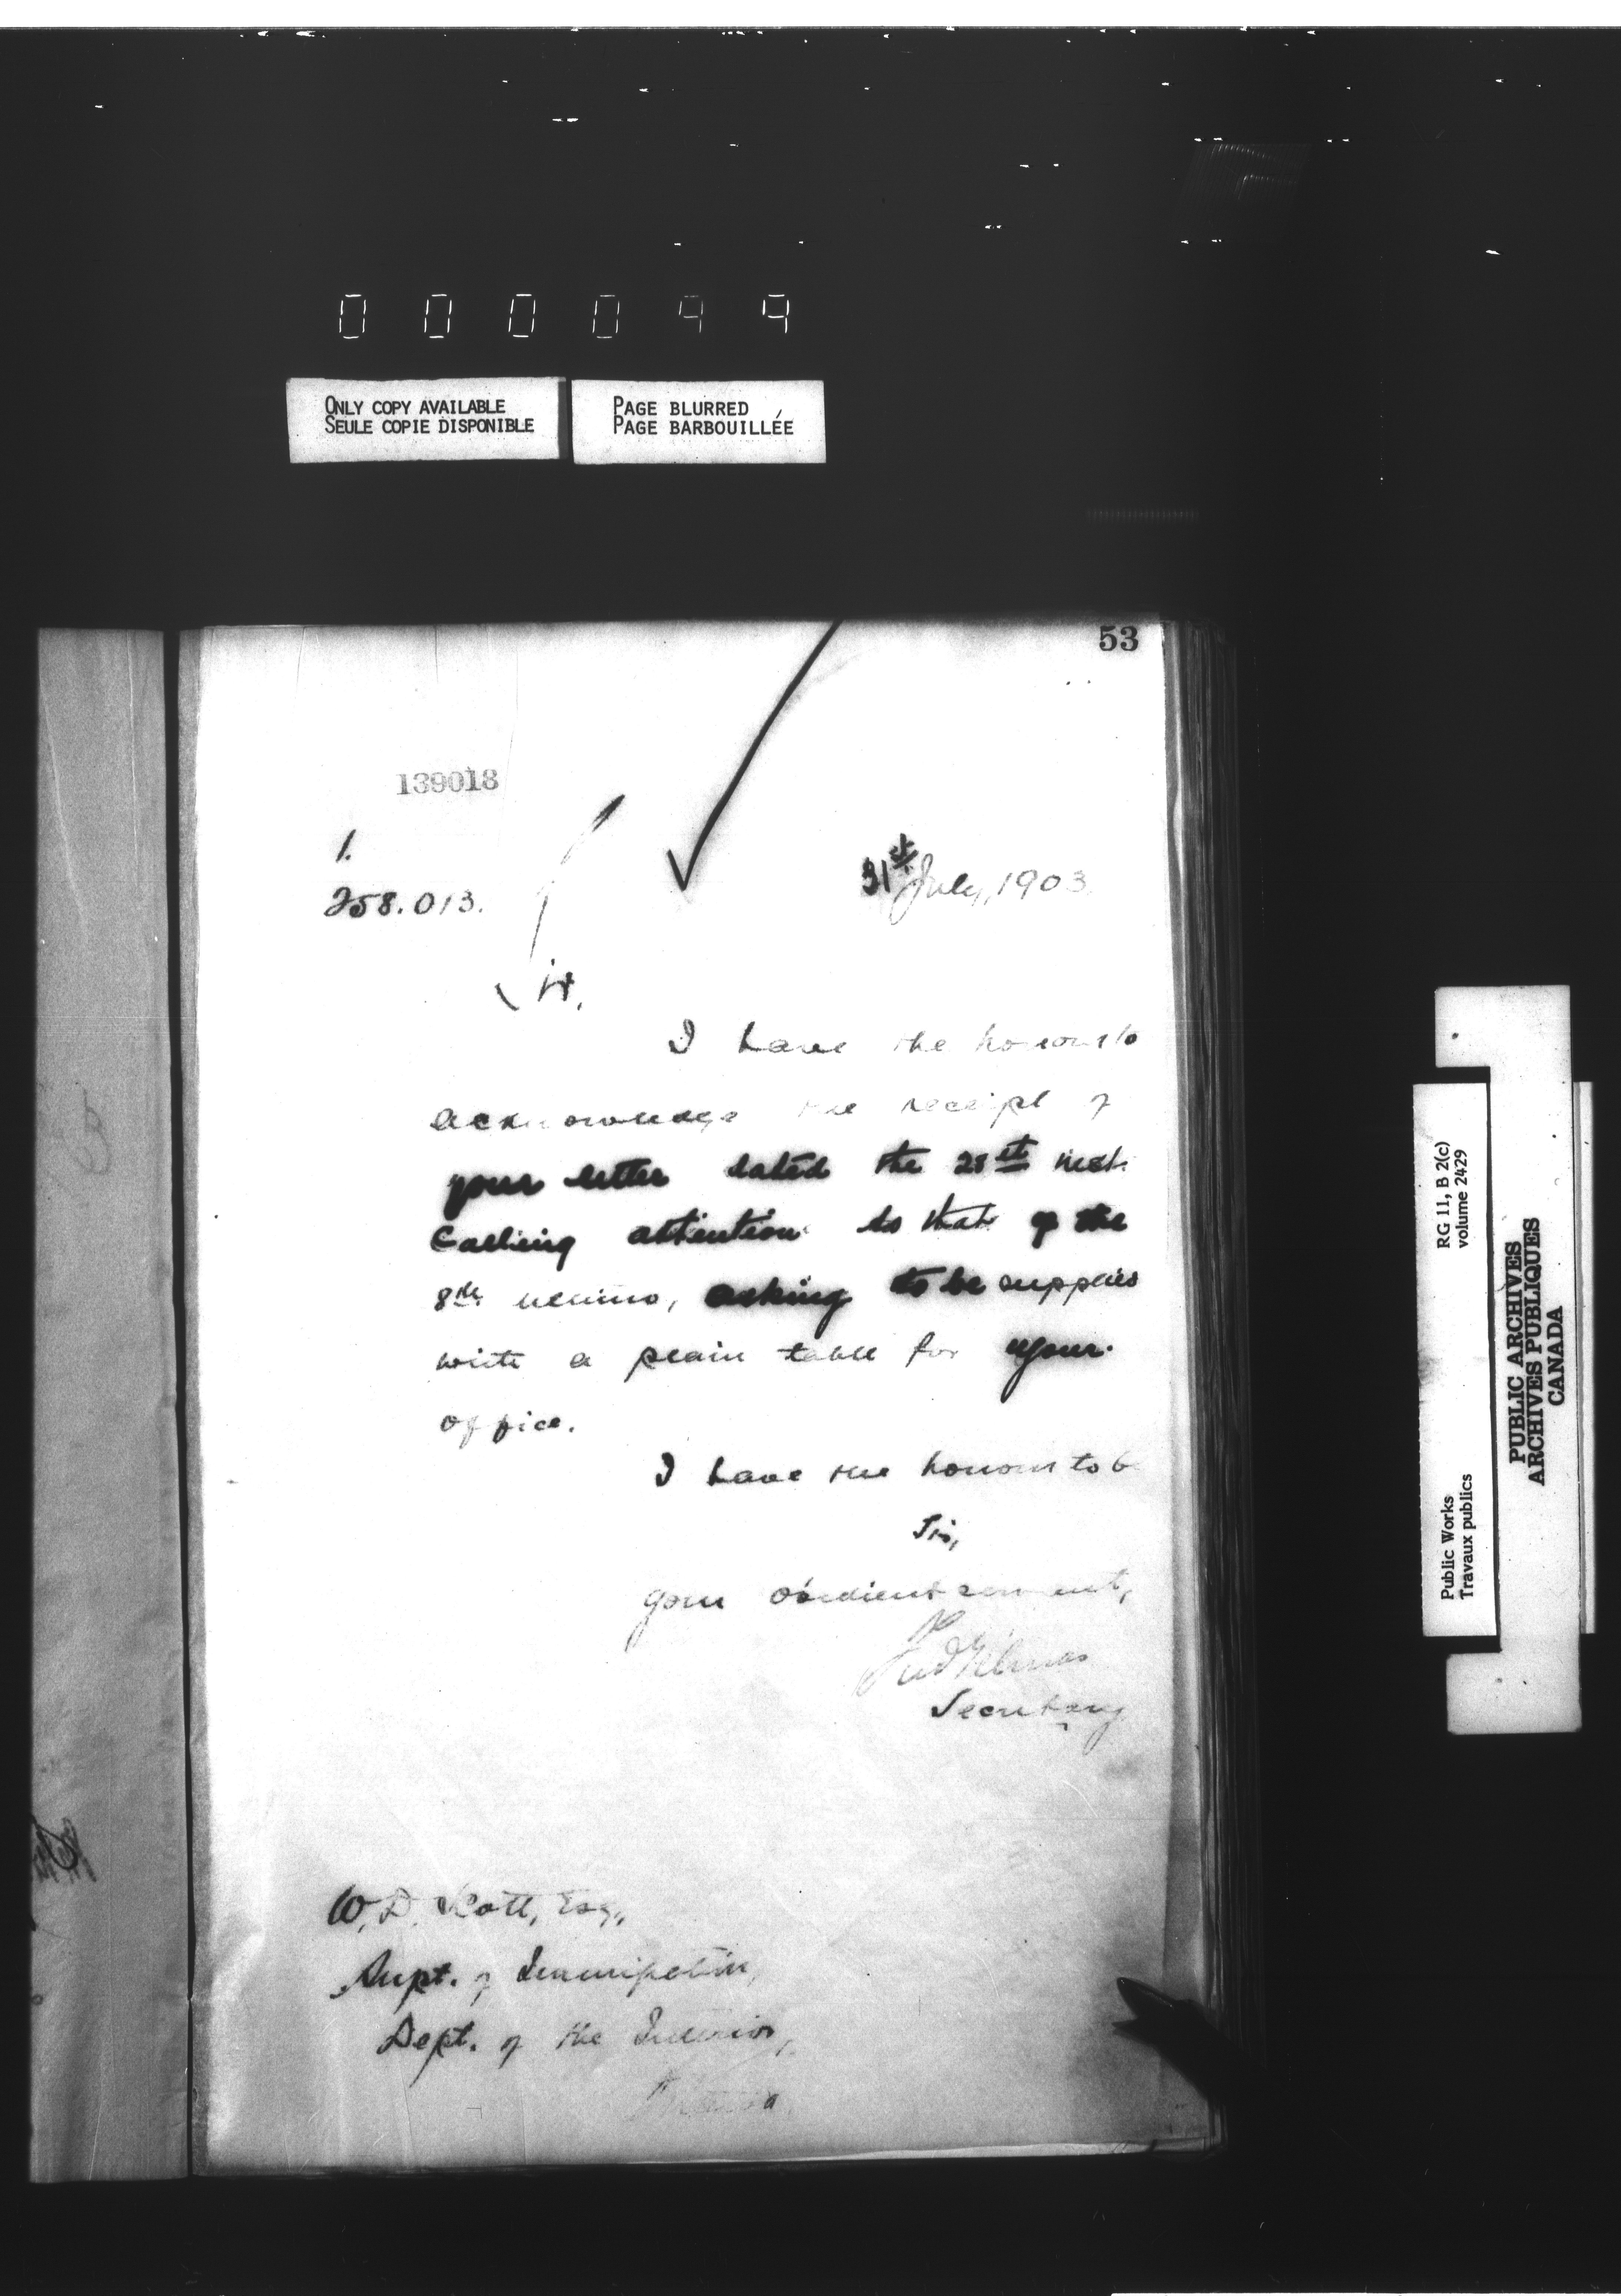 000099
ONLY COPY AVAILABLE
SEULE COPIE DISPONIBLE
PAGE BLURRED
PAGE BARBOUILLÉE
53
139018
1.
258.013.
31st July, 1903
Sir,
I have the honour to
acknowledge the receipt of
your letter dated the 28st inst.
Calling attention to that of the
8th ultimo, asking to be supplied
with a plain table for your
office.
I have the honour to be
Sir,
your obedient servant,
Fred Gélinas
Secretary
W. D. Scott, Esq.,
Supt. of Immigration,
Dept. of the Interior,
Ottawa.
RG 11, B 2(c)
volume 2429
Public Works
Travaux publics
PUBLIC ARCHIVES
ARCHIVES PUBLIQUES
CANADA